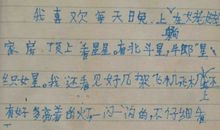 我喜欢每天晚上在姥姥
家房顶上看星星。看北斗星,牛郎星、
织女星。我还看见好几架飞机飞
有好多亮着的灯,一闪一闪的,不仔细看